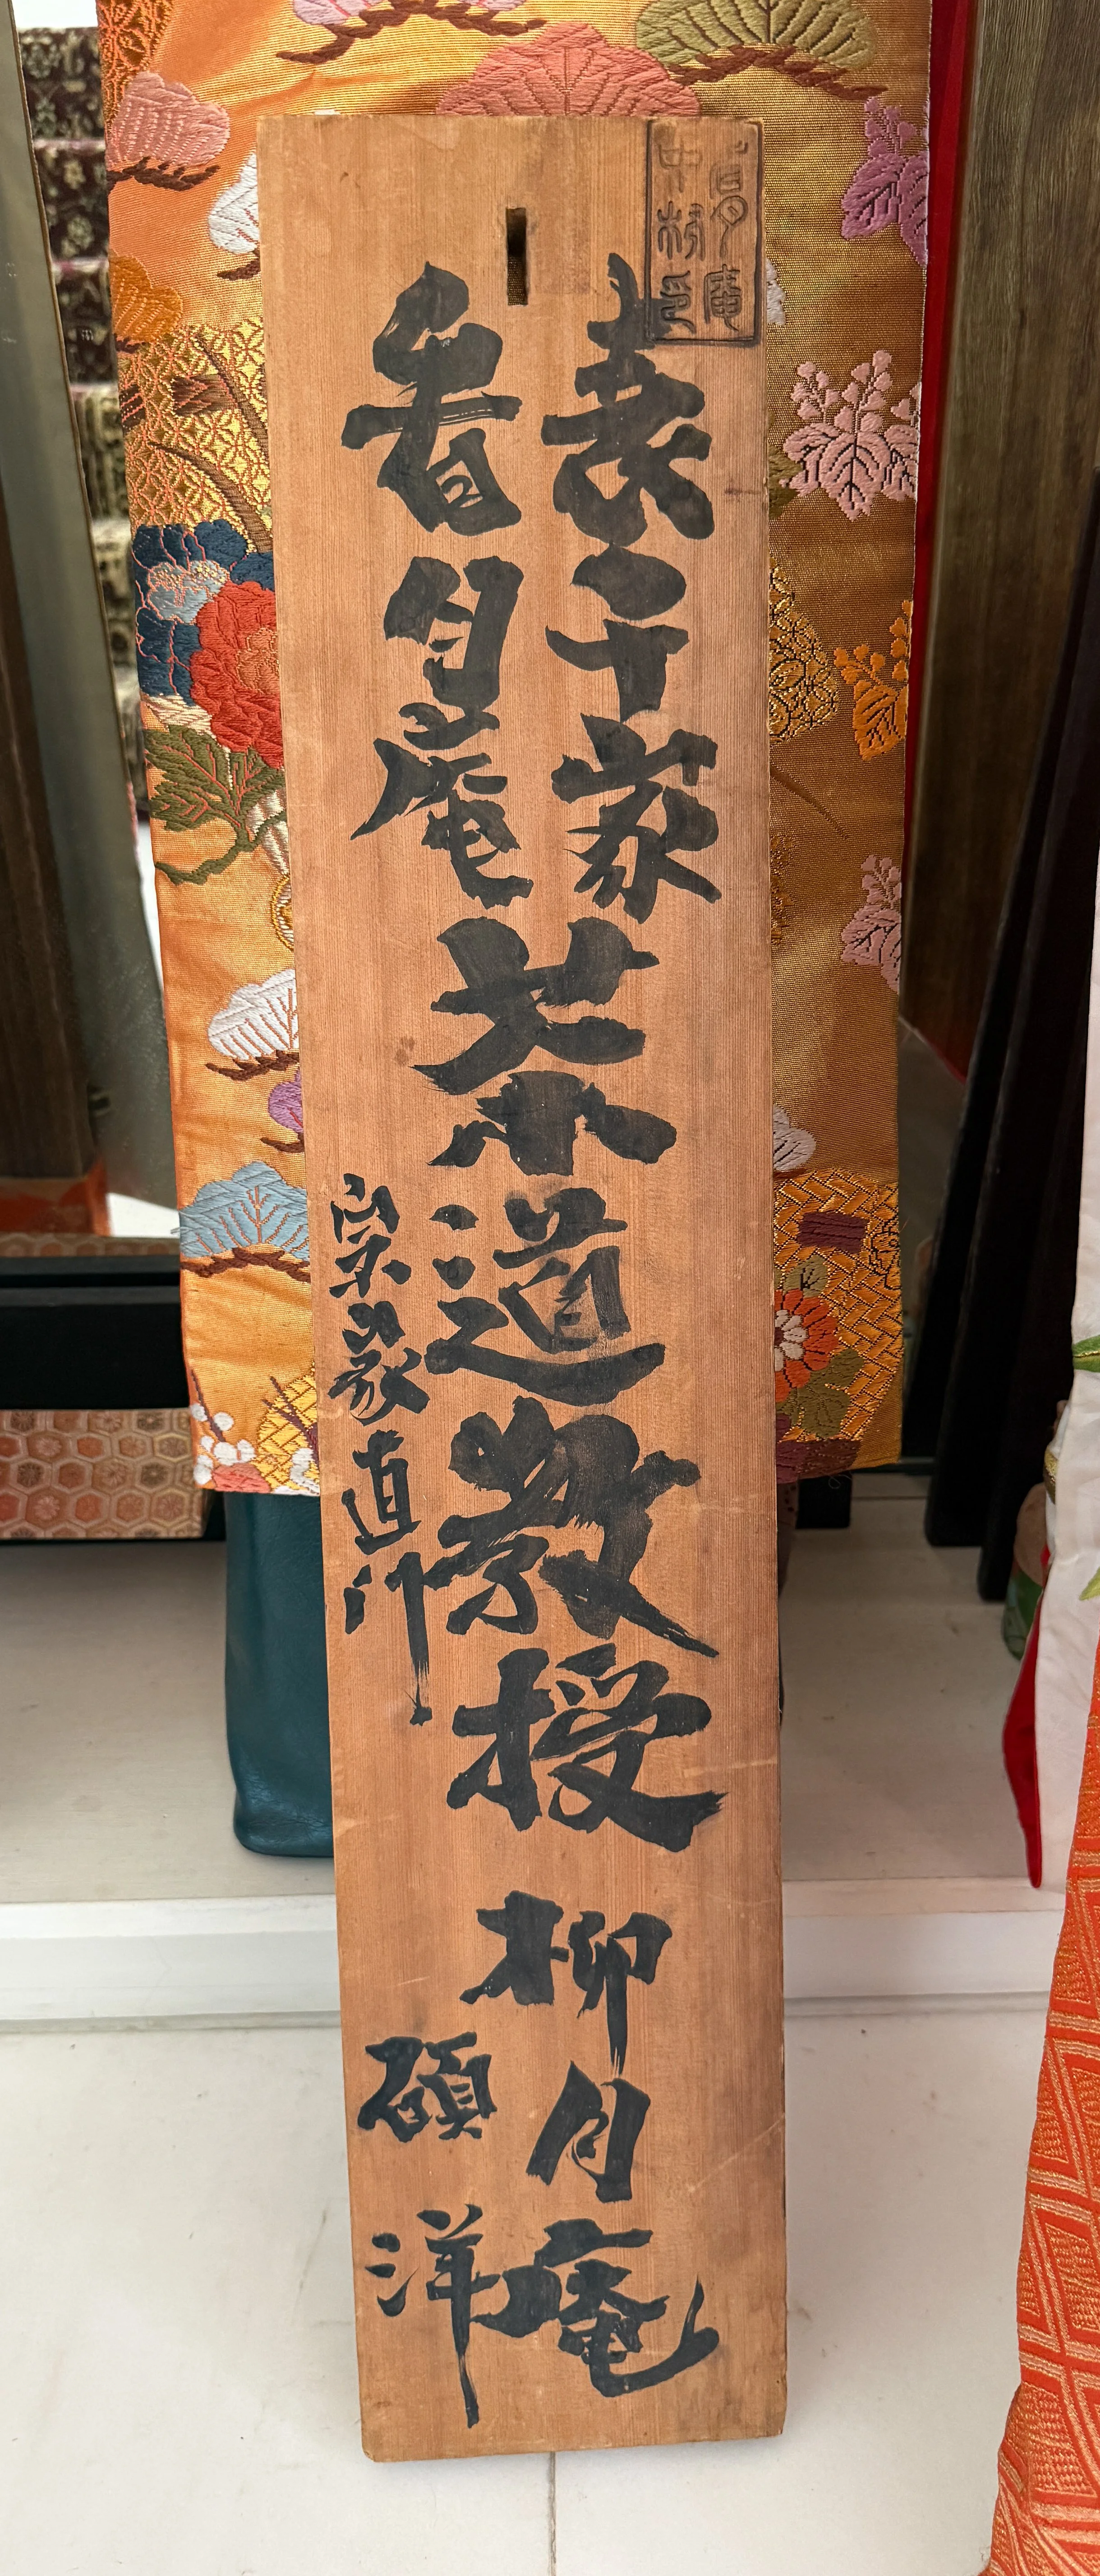 表千家
看月庵
茶道教授
宗家直門
柳月庵
碩洋